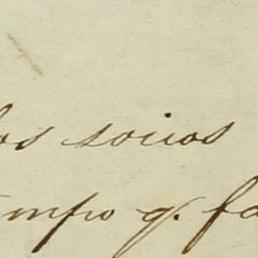 os socios
empo q. fa